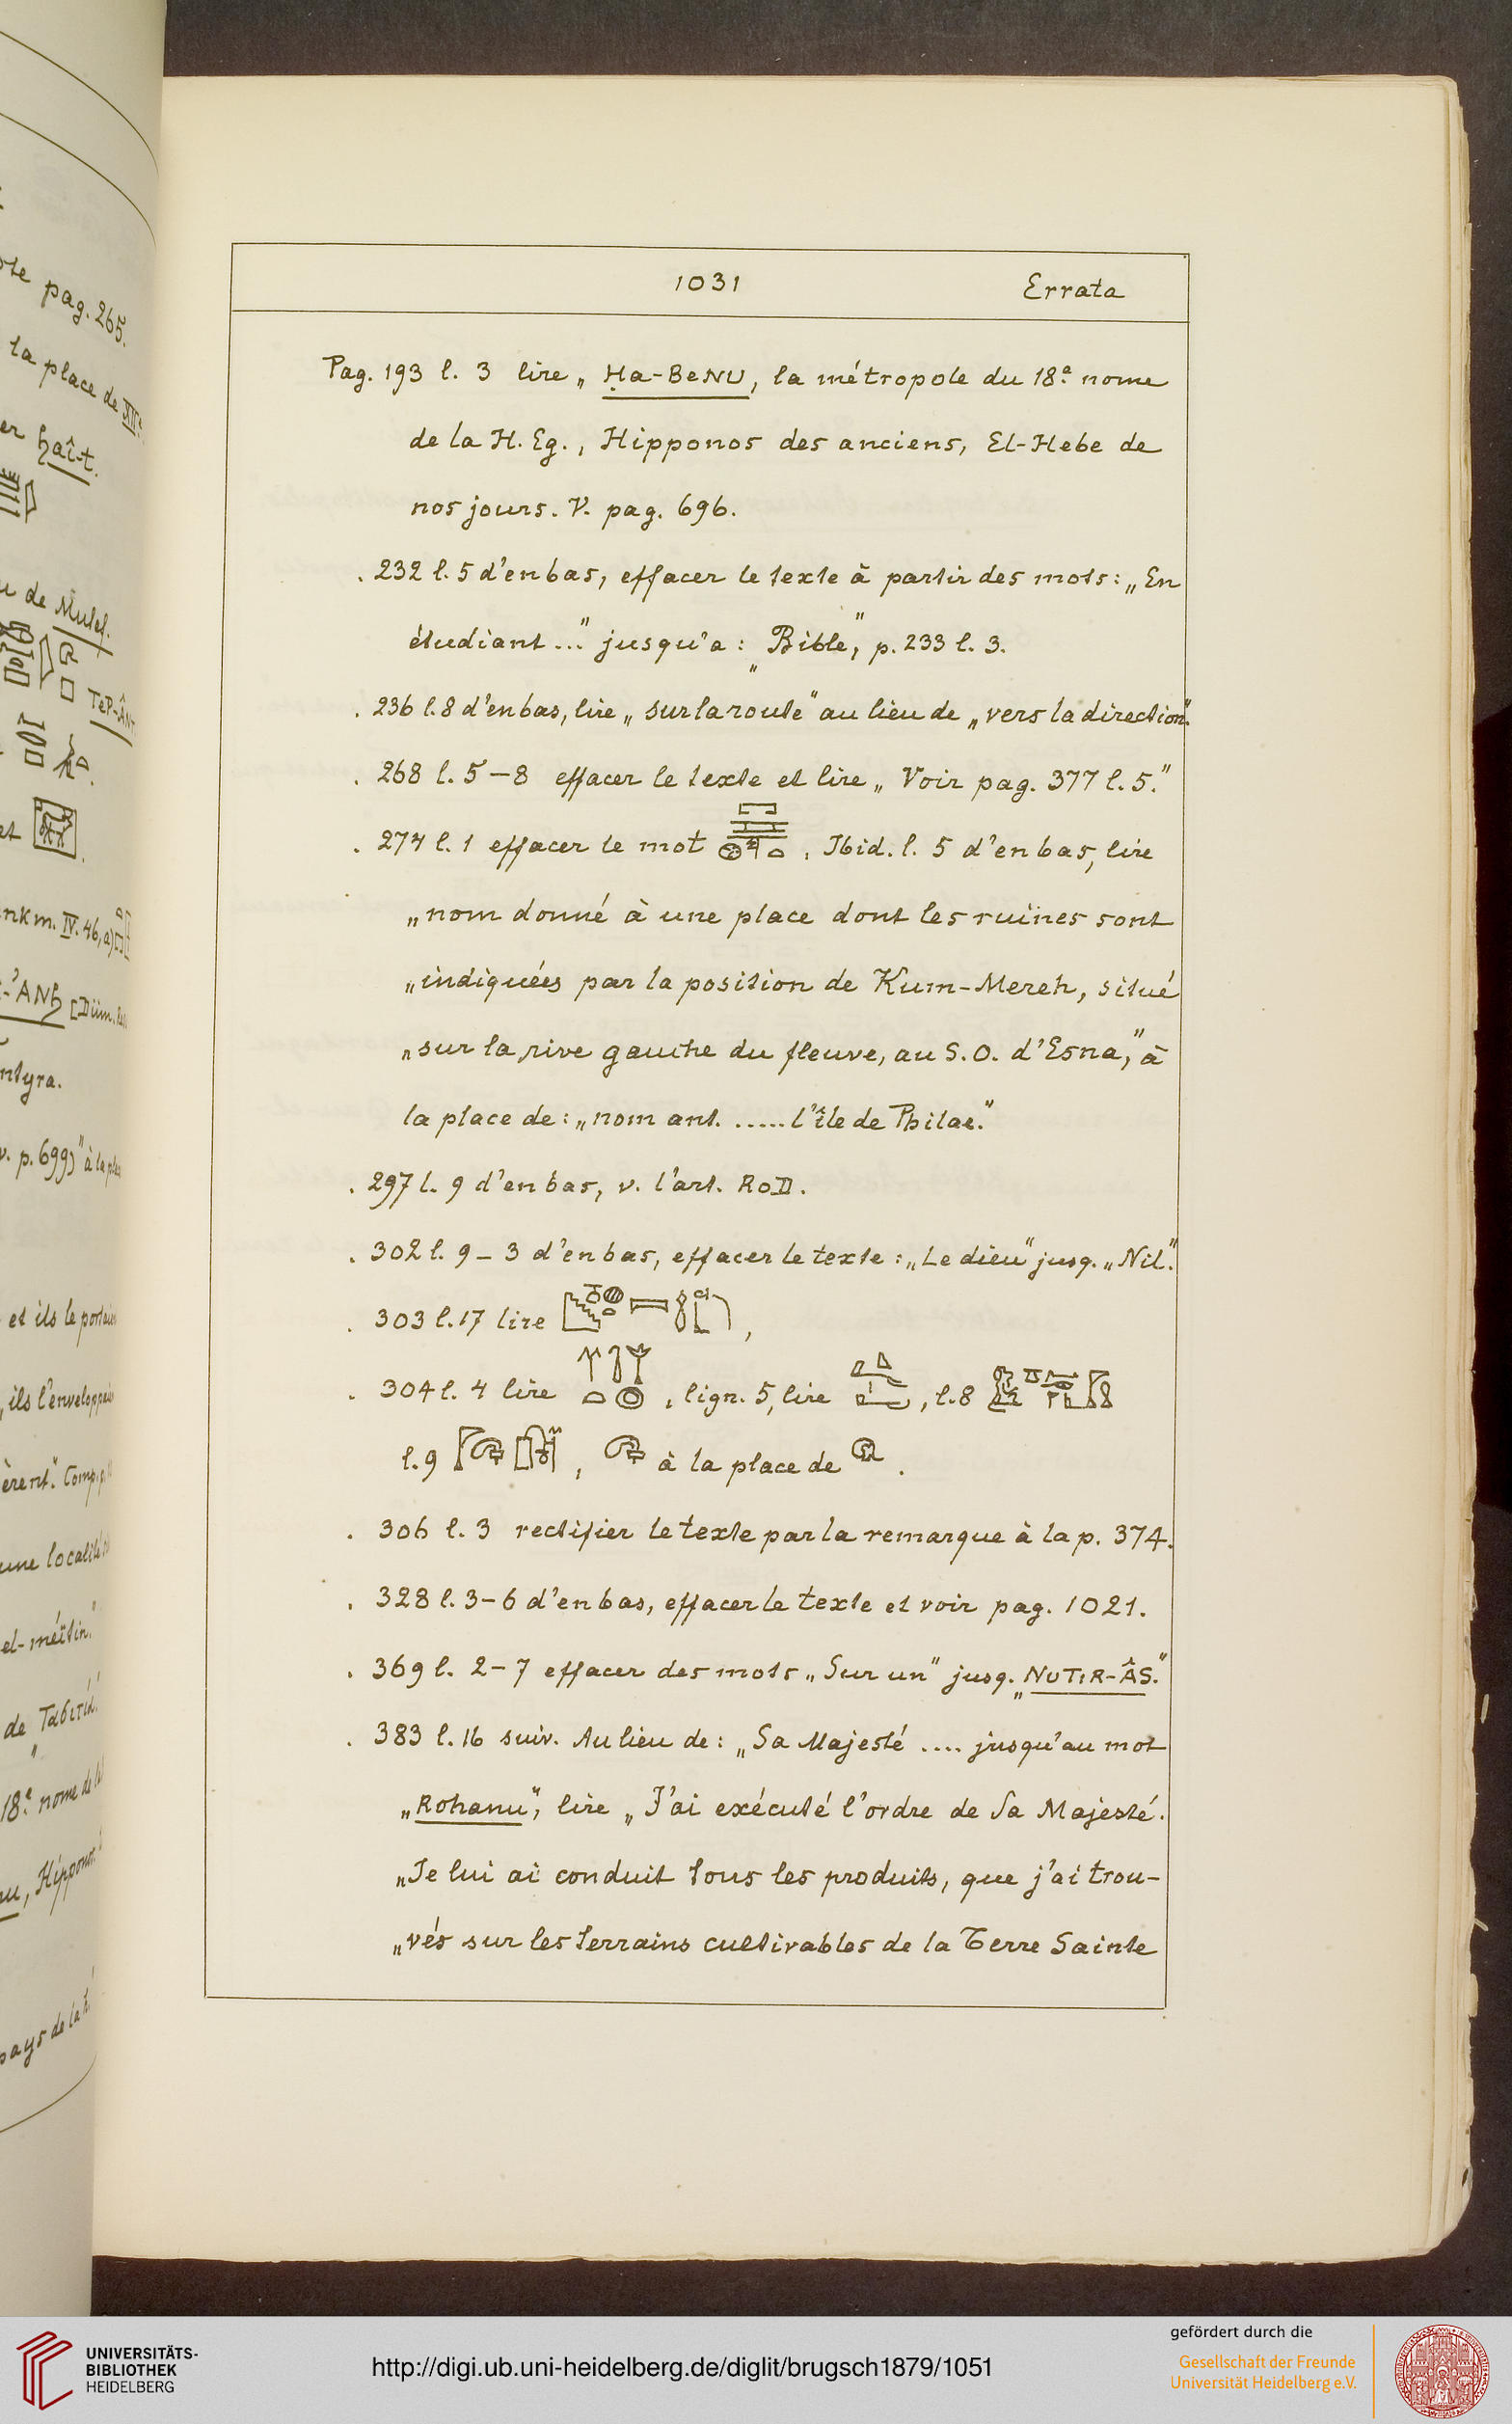 1031 Errata
Pag. 193 l. 3 lire „ Ḥa-BeNU, la métropole du 18e nome
de la H. Eg., Hipponos des anciens, El-Hebe de
nos jours. V. pag. 696.
. 232 l. 5 d'en bas, effacer le texte à partir des mots: „En
étudiant ..." jusqu'a: „Bible", p. 233 l. 3.
. 236 l. 8 d'en bas, lire „sur la route" au lieu de „vers la direction".
. 268 l. 5–8 effacer le texte et lire „Voir pag. 377 l. 5."
. 274 l. 1 effacer le mot . Ibid. l. 5 d'en bas, lire
„nom donné à une place dont les ruines sont
„indiquées par la position de Kum-Mereh, situé
„sur la rive gauche du fleuve, au S.O. d'Esna," à
la place de: „nom ant. ..... l'île de Philae."
. 297 l. 9 d'en bas, v. l'art. RoD.
. 302 l. 9–3 d'en bas, effacer le texte: „Le dieu" jusq. „Nil".
. 303 l. 17 lire ,
. 304 l. 4 lire , lign. 5, lire , l. 8
l. 9 , à la place de .
. 306 l. 3 rectifier le texte par la remarque à la p. 374.
. 328 l. 3–6 d'en bas, effacer le texte et voir pag. 1021.
. 369 l. 2–7 effacer des mots „Sur un" jusq. „NUTIR-ÂS."
. 383 l. 16 suiv. Au lieu de: „Sa Majesté .... jusqu'au mot
„Rohanu", lire „J'ai exécuté l'ordre de Sa Majesté.
„Je lui ai conduit tous les produits, que j'ai trou-
„vés sur les terrains cultivables de la Terre Sainte
pag. 265.
la place de XII
haît.
de Mulef.
TeP-ÂN
et
nkm. IV. 46, a)
-'ANḫ [Düm.
ntyra.
v. p. 699)" à la
et ils le
ils l'
". Comp.
une
el-
de „
18e nome de
pays de la
UNIVERSITÄTS-
BIBLIOTHEK
HEIDELBERG
http://digi.ub.uni-heidelberg.de/diglit/brugsch1879/1051
gefördert durch die
Gesellschaft der Freunde
Universität Heidelberg e.V.